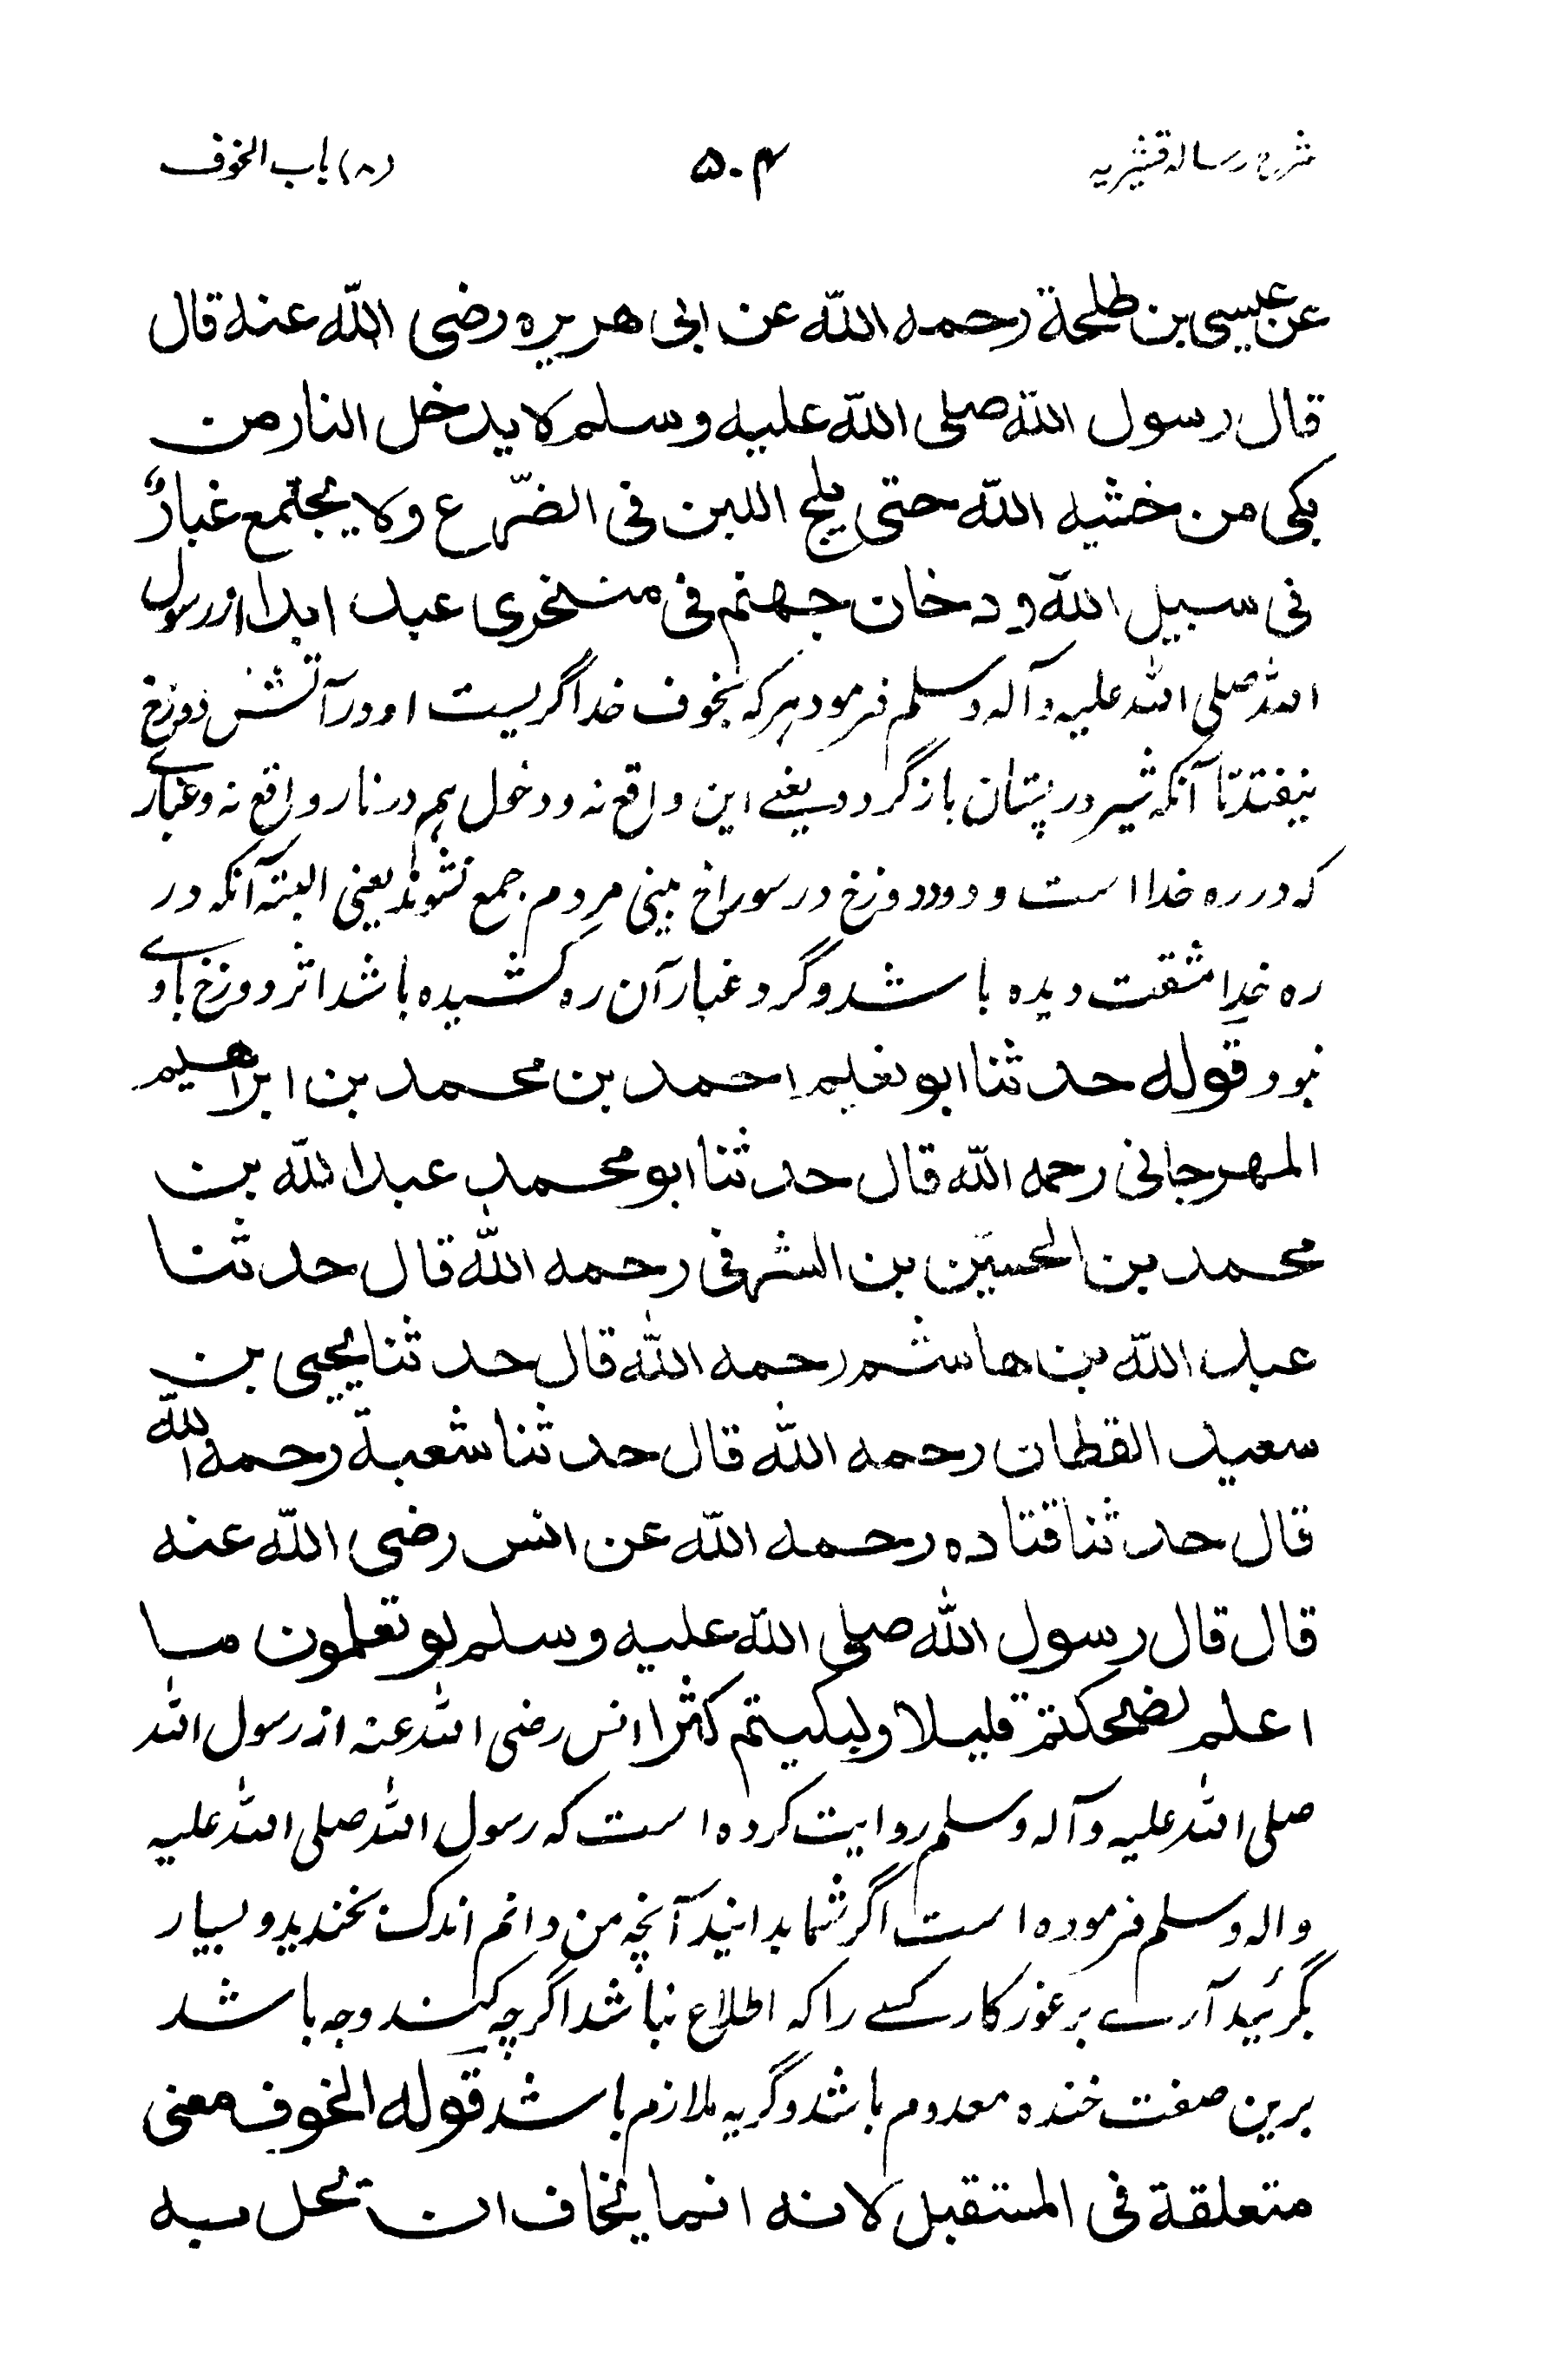 شرح رسالہ قشیریہ ۵۰۴ (۸) باب الخوف
عن عیسی بن طلحة رحمه اللّه عن ابی هریره رضی اللّه عنه قال
قال رسول اللّه صلی اللّه علیه وسلم لا یدخل النار من
بکی من خشیه اللّه حتی یلج اللبن فی الضّرع ولا یجتمع غبارٌ
فی سبیل اللّه ودخان جهنم فی منخری عبد ابدا از رسول
اللہ صلی اللہ علیہ وآلہ وسلم فرمود ہرکہ بخوف خدا گریست او در آتش دوزخ
نیفتد تا آنکہ شیر در پستان باز گردد یعنے این واقع نہ و دخول ہم در نار واقع نہ وغبارے
کہ در رہ خدا است و دود دوزخ در سوراخ بینی مردم جمع نشوند یعنی البتہ آنکہ در
رہ خدا مشقت دیدہ باشد وگرد غبار آن رہ کشیدہ باشد اثر دوزخ باوے
نبود قوله حدثنا ابو نعیم احمد بن محمد بن ابراهیم
المهرجانی رحمه اللّه قال حدثنا ابو محمد عبد اللّه بن
محمد بن الحسین بن الشرفی رحمه اللّه قال حدثنا
عبد اللّه بن هاشم رحمه اللّه قال حدثنا یحیی بن
سعید القطان رحمه اللّه قال حدثنا شعبة رحمه اللّه
قال حدثنا قتاده رحمه اللّه عن انس رضی اللّه عنه
قال قال رسول اللّه صلی اللّه علیه وسلم لو تعلمون ما
اعلم لضحکتم قلیلا ولبکیتم کثرا انس رضی اللہ عنہ از رسول اللہ
صلی اللہ علیہ وآلہ وسلم روایت کردہ است کہ رسول اللہ صلی اللہ علیہ
والہ وسلم فرمودہ است اگر شما بدانید آنچہ من دانم اندک بخندید و بسیار
بگرئید آرے بر غور کار کسے را کہ اطلاع نباشد اگرچہ کندوجہ باشد
برین صفت خندہ معدوم باشد وگریہ ملازم باشد قوله الخوف معنی
متعلقة فی المستقبل لانه انما یخاف ان تحل به